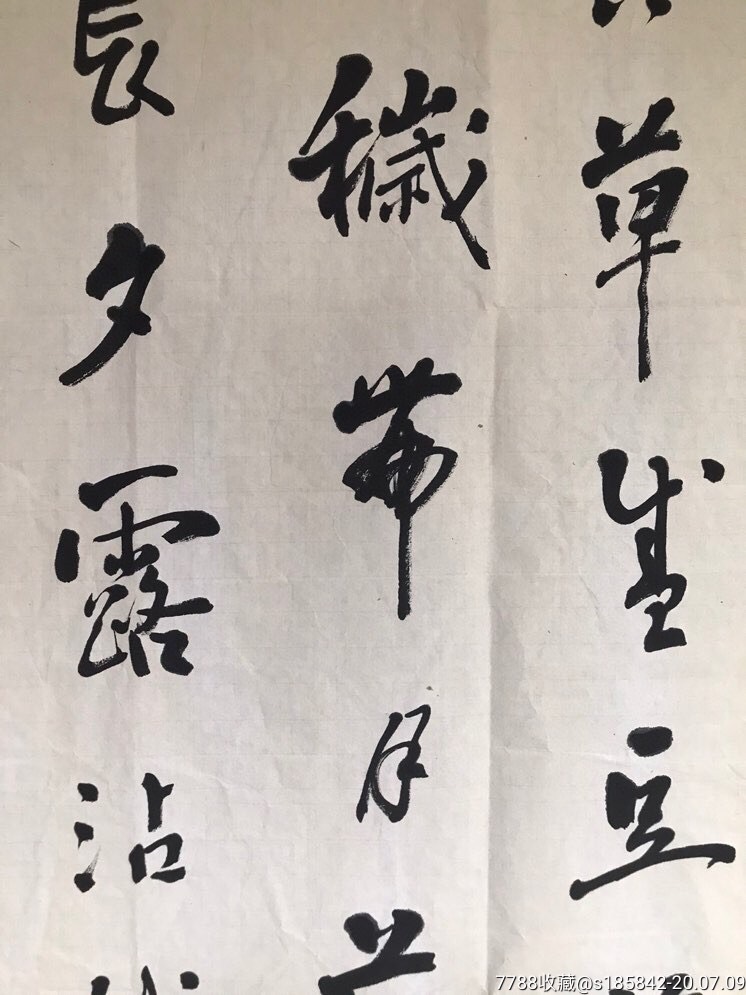 草盛豆
穢帶月
長夕露沾
7788收藏@s185842-20.07.09